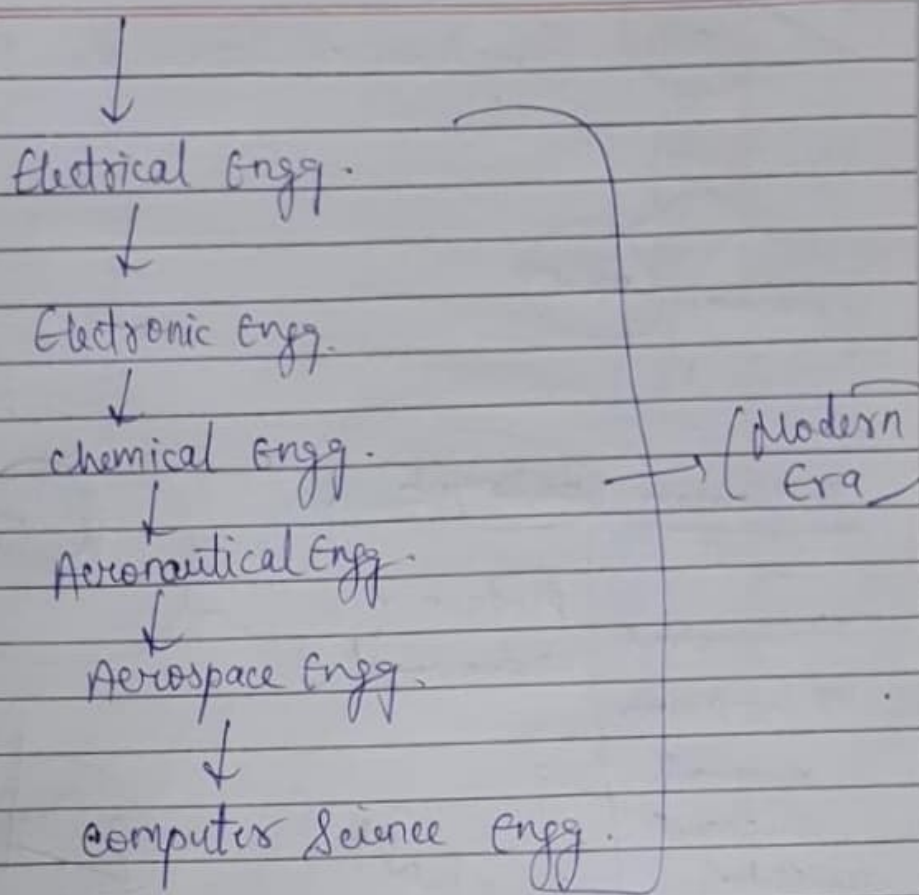 Electrical Engg.
Electronic Engg.
Chemical Engg.
(Modern
Era
Aeronautical Engg.
Aerospace Engg.
Computer Science Engg.